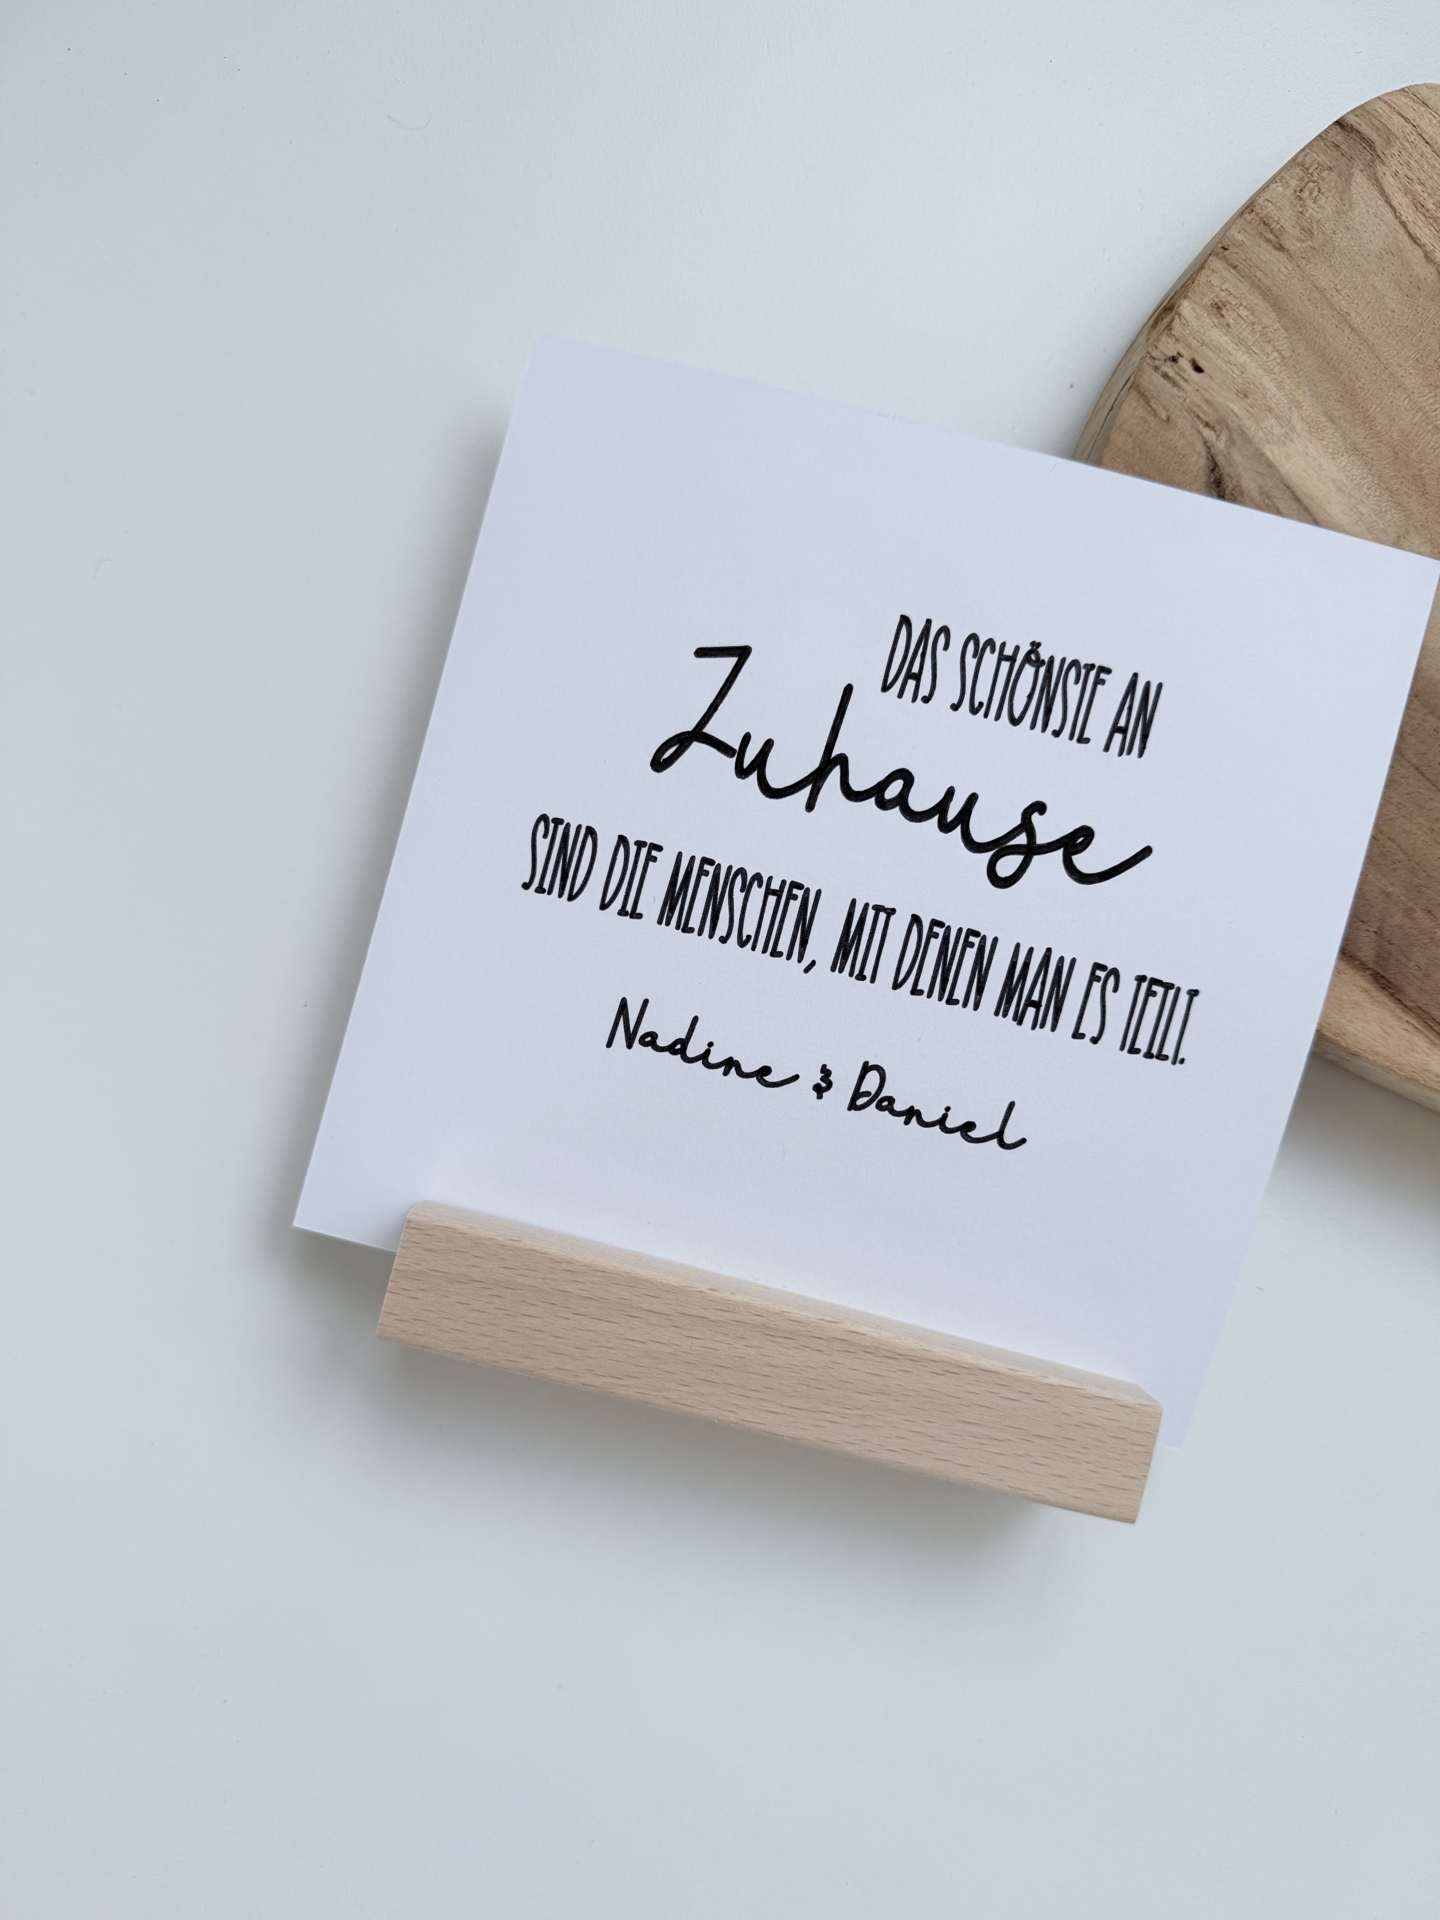 DAS SCHÖNSTE AN
Zuhause
SIND DIE MENSCHEN, MIT DENEN MAN ES TEILT.
Nadine & Daniel